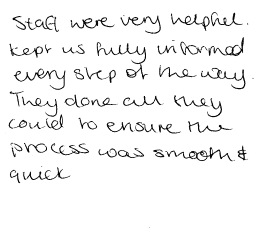 Staff were very helpful.
kept us fully informed
every step of the way.
They done all they
could to ensure the
process was smooth &
quick